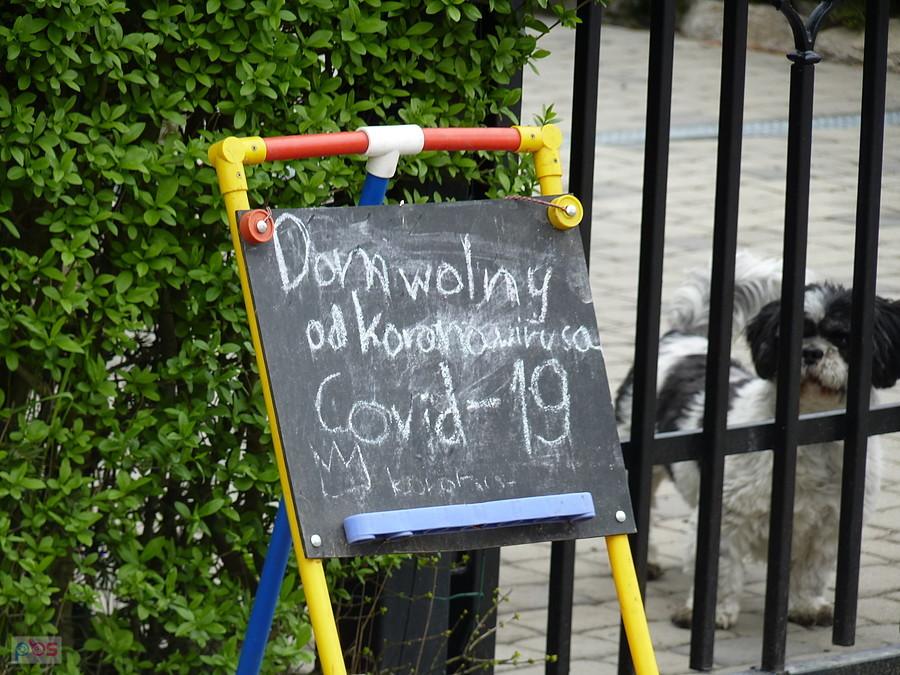 Dom wolny
od koronawirusa
Covid-19
pbs